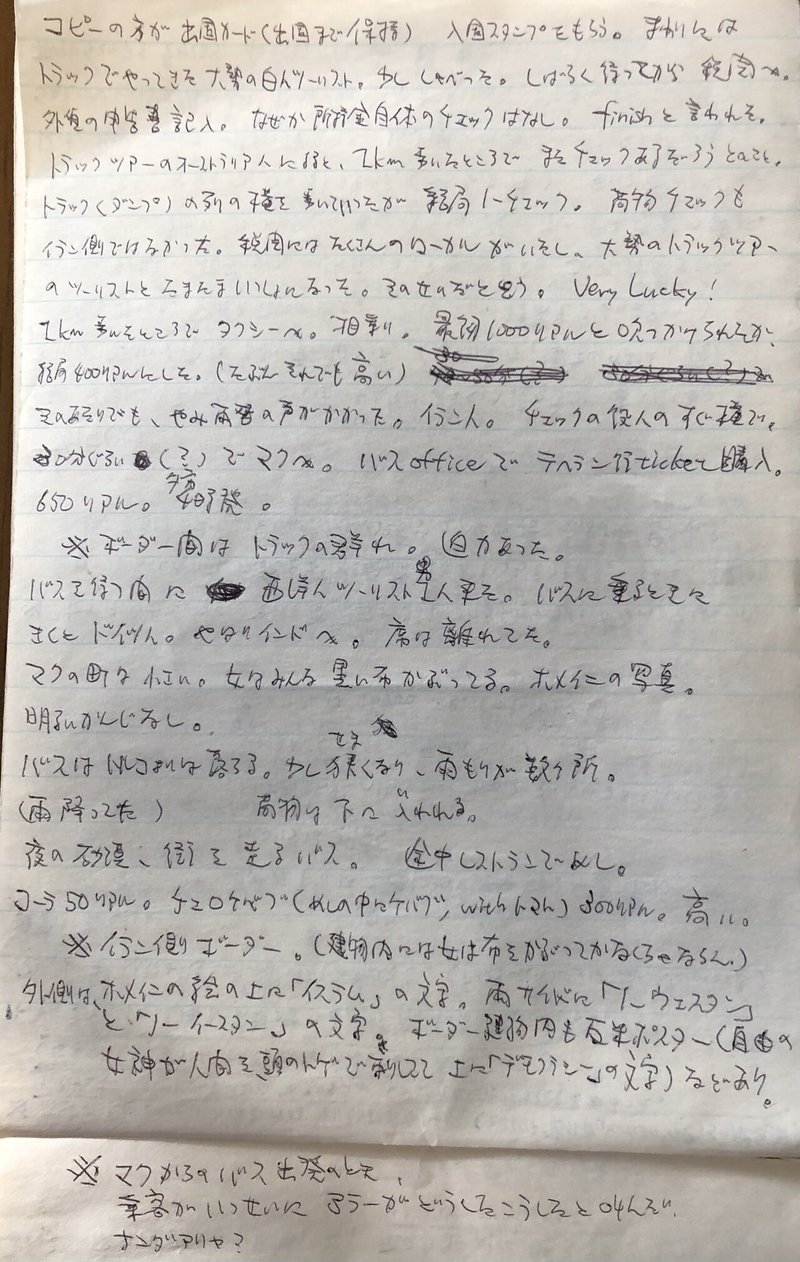 コピーの方が出国カード(出国まで保持) 入国スタンプをもらう。まわりには
トラックでやってきた大勢の白人ツーリスト。少ししゃべった。しばらく待ってから税関へ。
外貨の申告書記入。なぜか所持金自体のチェックはなし。finishと言われた。
トラックツアーのオーストラリア人によると、2km歩いたところでまたチェックあるだろうとのこと。
トラック(ダンプ)の列の横を歩いていったが結局ノーチェック。荷物チェックも
イラン側ではなかった。税関にはたくさんのローカルがいたし、大勢のトラックツアー
のツーリストとたまたまいっしょになった。そのせいだと思う。Very Lucky!
2km歩いたところでタクシーへ。相乗り。最初1000リアルと吹っかけられたが、
結局400リアルにした。(たぶんそれでも高い)
そのあたりでも、やみ両替の声がかかった。イラン人。チェックの役人のすぐ横で。
30分ぐらい(?)でマクへ。バスofficeでテヘラン行ticketを購入。
650リアル。夕方4時発。
※ボーダー間はトラックの群れ。迫力あった。
バスを待つ間に西洋人ツーリスト男2人来た。バスに乗るときに
きくとドイツ人。やはりインドへ。席は離れてた。
マクの町は小さい。女はみんな黒い布かぶってる。ホメイニの写真。
明るいかんじなし。
バスはトルコよりは落ちる。少し狭くなり、雨もりが数ヶ所。
せま
(雨降ってた) 荷物は下に入れられる。
夜の砂漠、街を走るバス。途中レストランでめし。
コーラ50リアル。チェロケバブ(めしの中にケバブ, withトマト)300リアル。高い。
※イラン側ボーダー。(建物内には女は布をかぶってかなくちゃならん。)
外側は、ホメイニの絵の上に「イスラム」の文字。両サイドに「ノーウェスタン」
と「ノーイースタン」の文字。ボーダー建物内も反米ポスター(自由の
女神が人間を頭のトゲで刺してて上に「デモクラシー」の文字)などあり。
※マクからのバス出発のとき、
乗客がいっせいにアラーがどうしたこうしたと叫んだ。
ナンダアリャ?